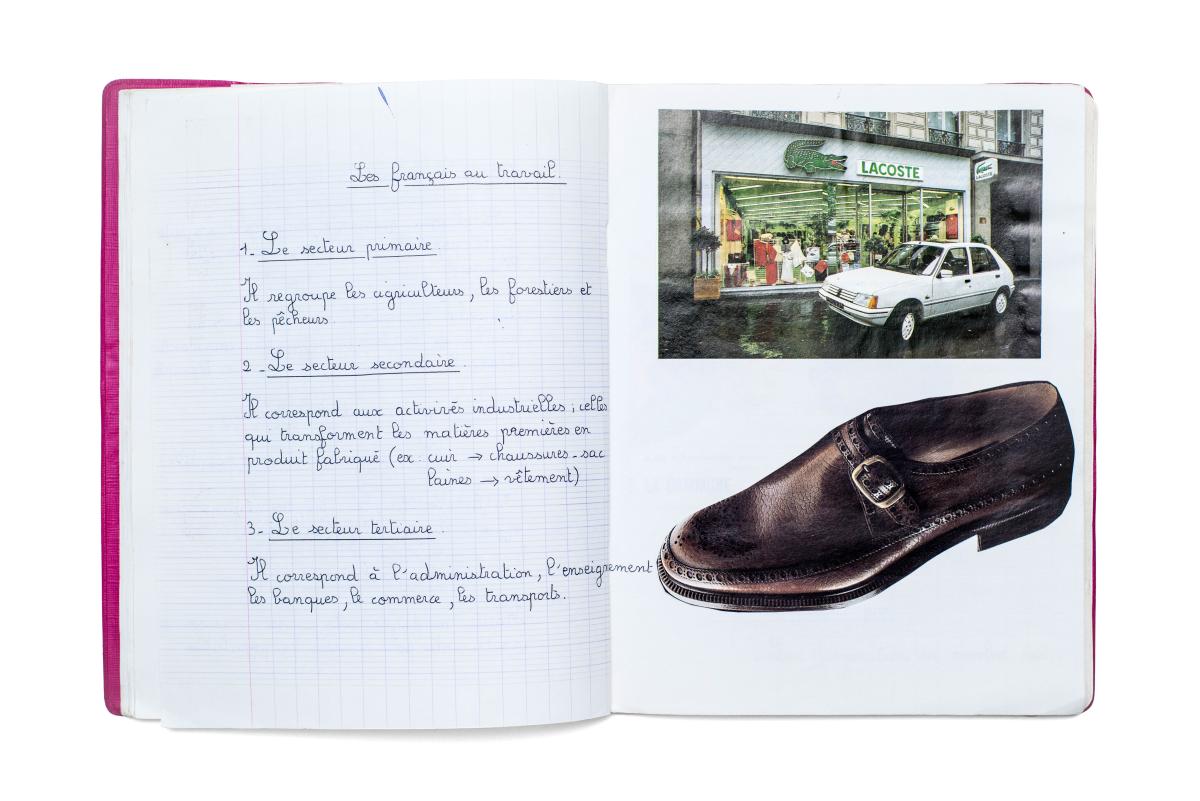 Les français au travail.
1- Le secteur primaire.
Il regroupe les agriculteurs, les forestiers et
les pêcheurs.
2 - Le secteur secondaire.
Il correspond aux activivés industrielles ; celles
qui transforment les matières premières en
produit fabriqué (ex : cuir → chaussures - sac
laines → vêtement)
3- Le secteur tertiaire.
Il correspond à l'administration, l'enseignement
les banques, le commerce, les transports.
LACOSTE
LACOSTE